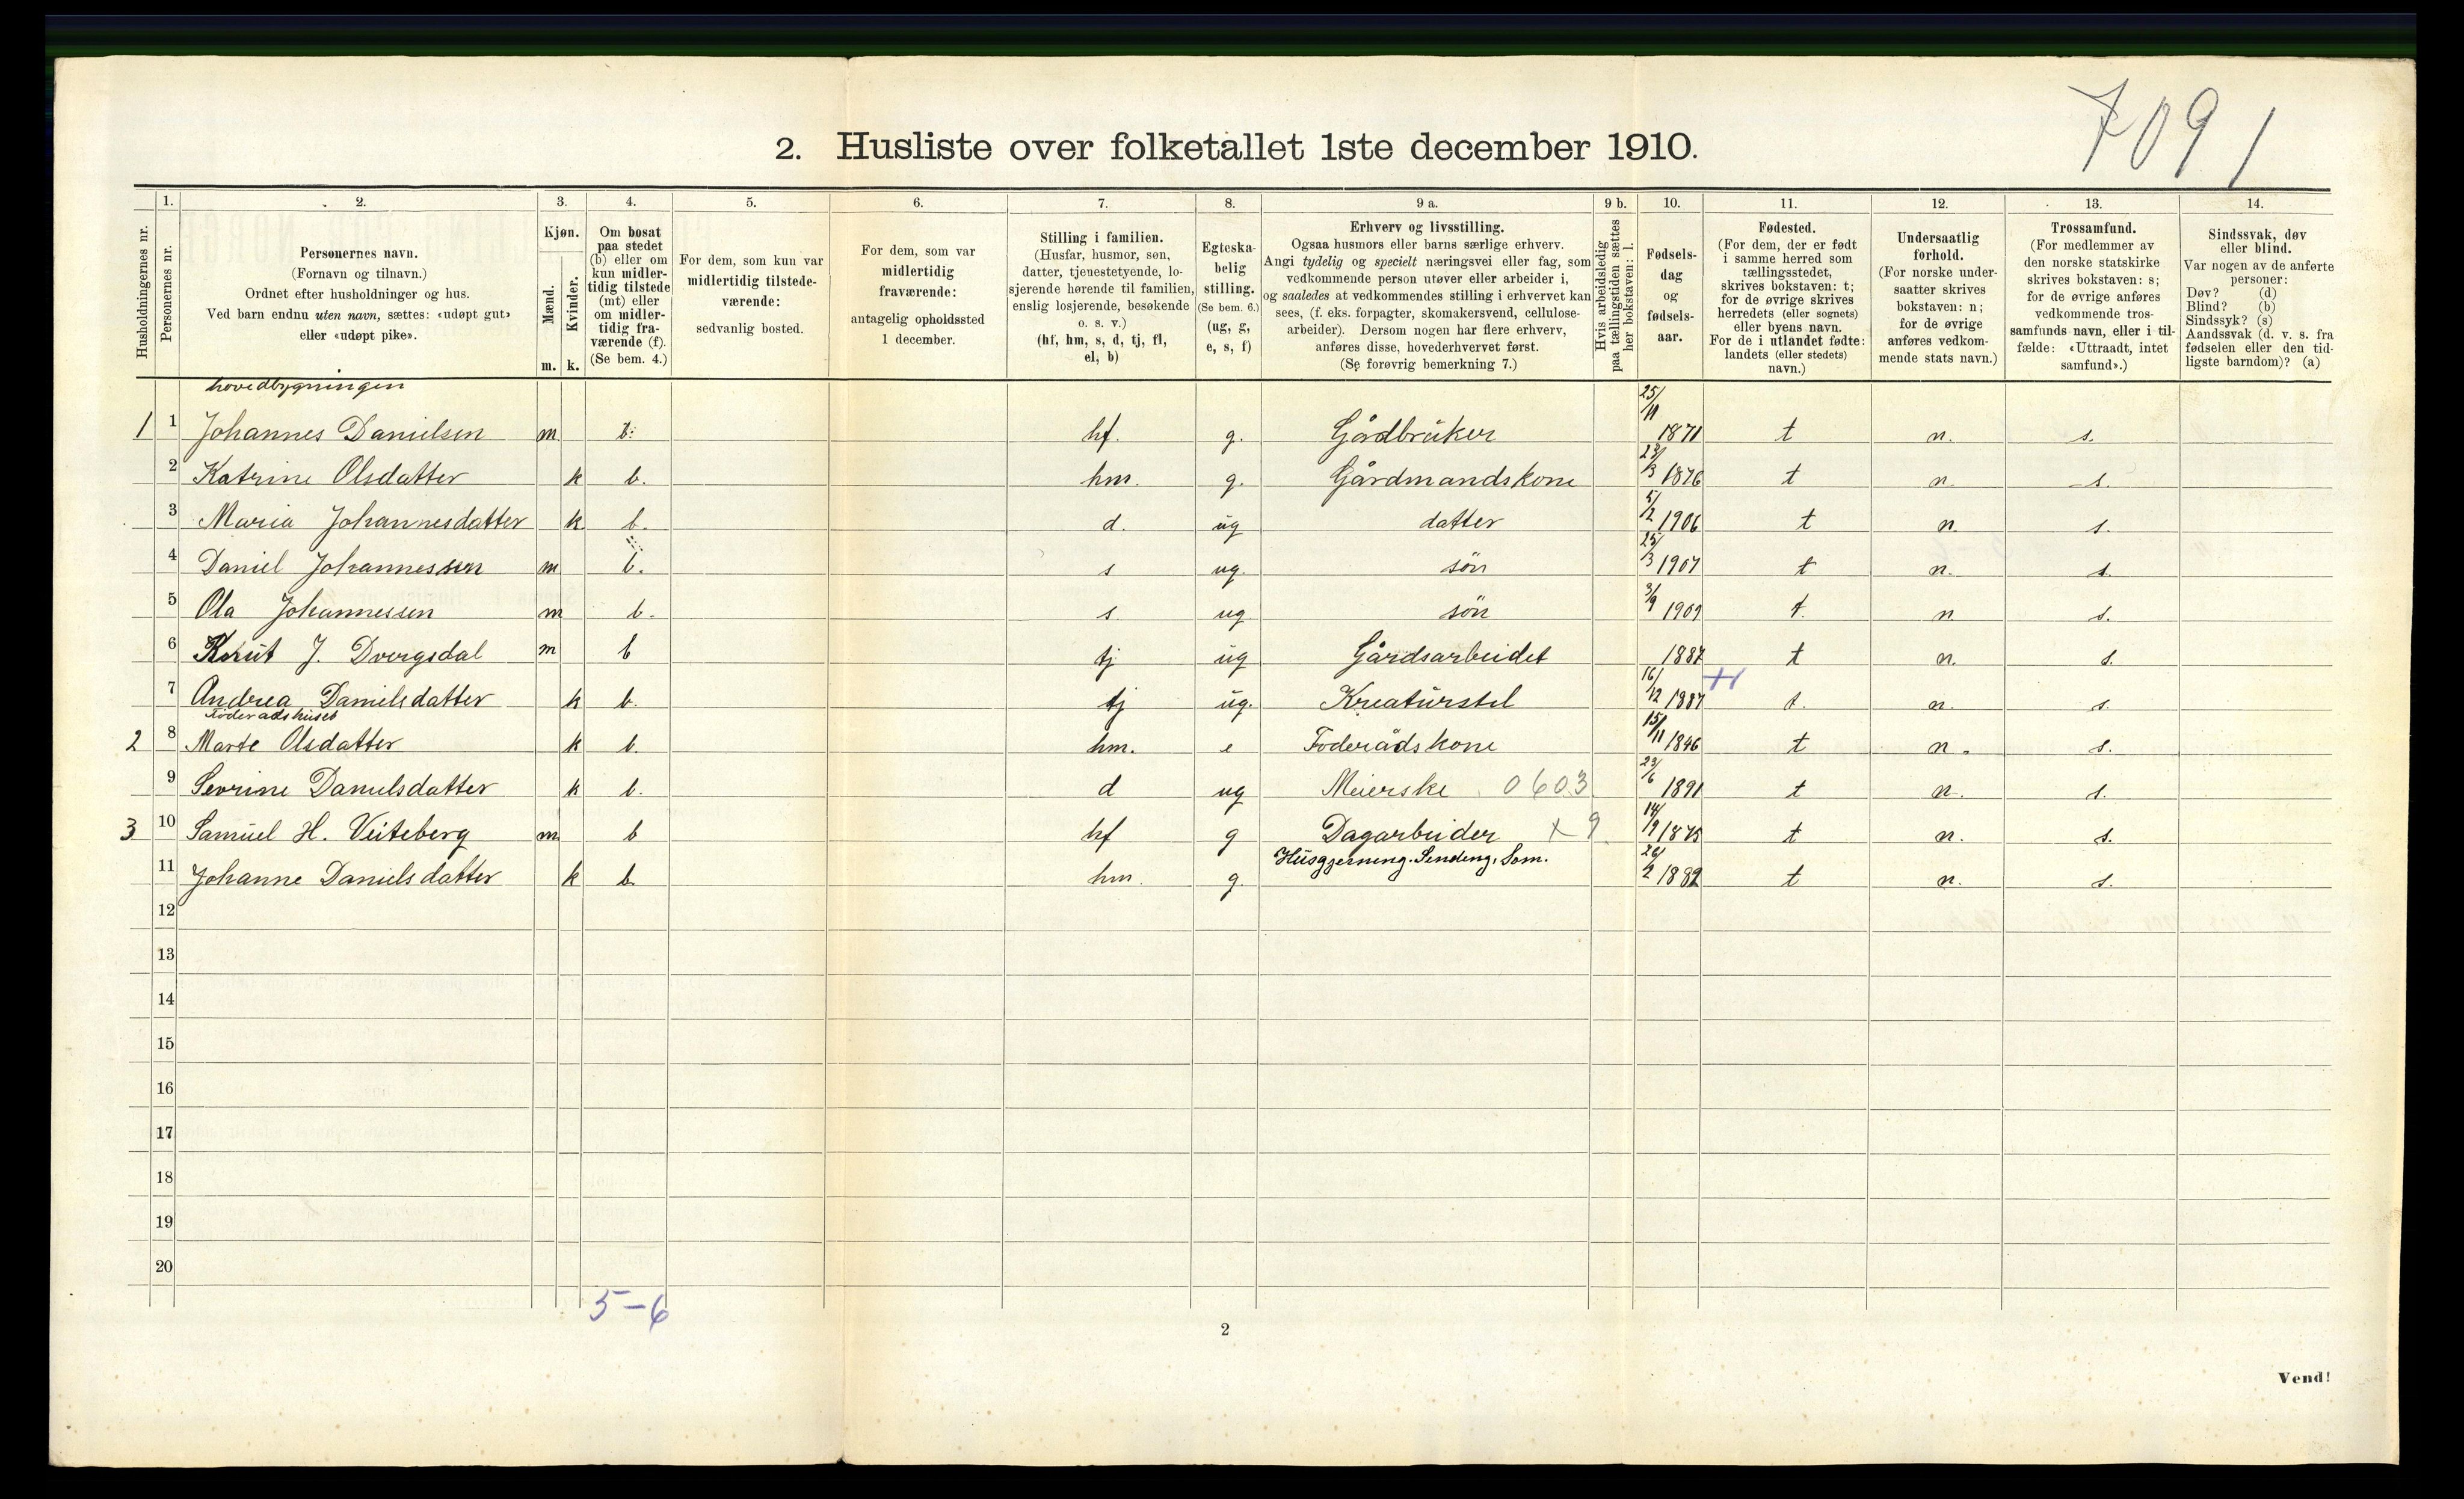 7091
2. Husliste over folketallet 1ste december 1910.
Husholdningernes nr.
1.
Personernes nr.
2.
Personernes navn.
(Fornavn og tilnavn.)
Ordnet efter husholdninger og hus.
Ved barn endnu uten navn, sættes: «udøpt gut»
eller «udøpt pike».
3.
Kjøn.
Mænd.
m.
Kvinder.
k.
4.
Om bosat
paa stedet
(b) eller om
kun midler-
tidig tilstede
(mt) eller
om midler-
tidig fra-
værende (f).
(Se bem. 4.)
5.
For dem, som kun var
midlertidig tilstede-
værende:
sedvanlig bosted.
6.
For dem, som var
midlertidig
fraværende:
antagelig opholdssted
1 december.
7.
Stilling i familien.
(Husfar, husmor, søn,
datter, tjenestetyende, lo-
sjerende hørende til familien,
enslig losjerende, besøkende
o. s. v.)
(hf, hm, s, d, tj, fl,
el, b)
8.
Egteska-
belig
stilling.
(Se bem. 6.)
(ug, g,
e, s, f)
9 a.
Erhverv og livsstilling.
Ogsaa husmors eller barns særlige erhverv.
Angi tydelig og specielt næringsvei eller fag, som
vedkommende person utøver eller arbeider i,
og saaledes at vedkommendes stilling i erhvervet kan
sees, (f. eks. forpagter, skomakersvend, cellulose-
arbeider). Dersom nogen har flere erhverv,
anføres disse, hovederhvervet først.
(Se forøvrig bemerkning 7.)
9 b.
Hvis arbeidsledig
paa tællingstiden sættes
her bokstaven: l.
10.
Fødsels-
dag
og
fødsels-
aar.
11.
Fødested.
(For dem, der er født
i samme herred som
tællingsstedet,
skrives bokstaven: t;
for de øvrige skrives
herredets (eller sognets)
eller byens navn.
For de i utlandet fødte:
landets (eller stedets)
navn.)
12.
Undersaatlig
forhold.
(For norske under-
saatter skrives
bokstaven: n;
for de øvrige
anføres vedkom-
mende stats navn.)
13.
Trossamfund.
(For medlemmer av
den norske statskirke
skrives bokstaven: s;
for de øvrige anføres
vedkommende tros-
samfunds navn, eller i til-
fælde: «Uttraadt, intet
samfund».)
14.
Sindssvak, døv
eller blind.
Var nogen av de anførte
personer:
Døv? (d)
Blind? (b)
Sindssyk? (s)
Aandssvak (d. v. s. fra
fødselen eller den tid-
ligste barndom)? (a)
hovedbygningen
1 1 Johannes Danielsen m b. hf. g. Gårdbrüker 25/11 1871 t n. s.
2 Katrine Olsdatter k b. hm. g. Gårdmandskone 23/3 1876 t n. s.
3 Maria Johannesdatter k b. d. ug datter 5/2 1906 t n. s.
4 Daniel Johannessen m b. s ug. sön 25/3 1907 t n. s.
5 Ola Johannessen m b. s. ug sön 3/9 1909 t. n. s.
6 Knut J. Dvergsdal m b tj ug Gårdsarbeidet 1887 t n. s.
7 Andrea Danielsdatter k b. tj ug. Kreaturstel 16/12 1887 t. n. s.
Föderådshuset
2 8 Marte Olsdatter k b. hm. e Foderådskone 15/11 1846 t n. s.
9 Sevrine Danielsdatter k b. d ug Meierske 0603 23/6 1891 t n. s.
3 10 Samuel H. Veiteberg m b hf g Dagarbeider x 9 14/9 1875 t n. s.
11 Johanne Danielsdatter k b hm. g. Husgjerning. Sendeng. Som. 26/2 1882 t n. s.
12
13
14
15
16
17
18
19
20
5-6
2
Vend!